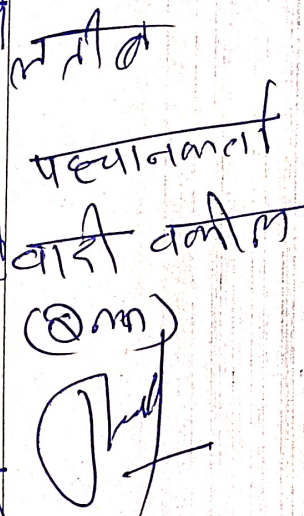 लतीब
पहचानकर्ता
वादी वकील